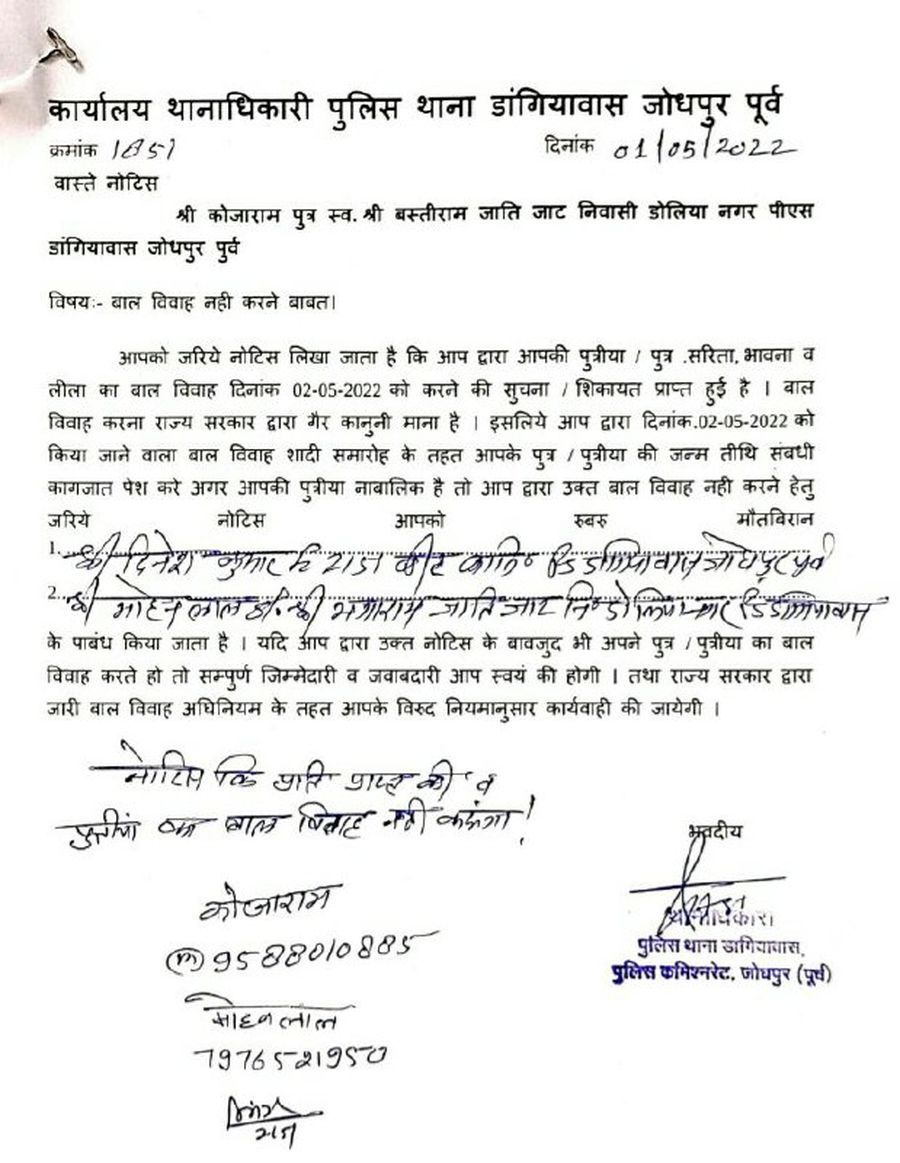 कार्यालय थानाधिकारी पुलिस थाना डांगियावास जोधपुर पूर्व
क्रमांक 1851 दिनांक 01/05/2022
वास्ते नोटिस
श्री कोजाराम पुत्र स्व. श्री बस्तीराम जाति जाट निवासी डोलिया नगर पीएस
डांगियावास जोधपुर पुर्व
विषयः- बाल विवाह नही करने बाबत।
आपको जरिये नोटिस लिखा जाता है कि आप द्वारा आपकी पुत्रीया / पुत्र .सरिता, भावना व
लीला का बाल विवाह दिनांक 02-05-2022 को करने की सुचना / शिकायत प्राप्त हुई है । बाल
विवाह करना राज्य सरकार द्वारा गैर कानुनी माना है । इसलिये आप द्वारा दिनांक.02-05-2022 को
किया जाने वाला बाल विवाह शादी समारोह के तहत आपके पुत्र / पुत्रीया की जन्म तीथि संबधी
कागजात पेश करे अगर आपकी पुत्रीया नाबालिक है तो आप द्वारा उक्त बाल विवाह नही करने हेतु
जरिये नोटिस आपको रुबरु मौतबिरान
1. श्री दिनेश कुमार जोधपुर पुर्व
2. श्री मोहन लाल श्री जाति जाट नि०
के पाबंध किया जाता है । यदि आप द्वारा उक्त नोटिस के बावजुद भी अपने पुत्र / पुत्रीया का बाल
विवाह करते हो तो सम्पुर्ण जिम्मेदारी व जवाबदारी आप स्वयं की होगी । तथा राज्य सरकार द्वारा
जारी बाल विवाह अधिनियम के तहत आपके विरुद नियमानुसार कार्यवाही की जायेगी ।
नोटिस कि प्रति प्राप्त की व
पुत्रीयां का बाल विवाह नही करूंगा!
भवदीय
कोजाराम
(m) 9588010885
थानाधिकारी
पुलिस थाना डांगियावास,
पुलिस कमिश्नरेट, जोधपुर (पूर्व)
मोहनलाल
7976521950